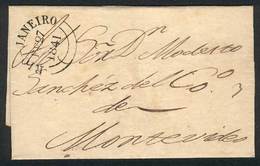 JANEIRO
27
1841
Sr. Dn. Modesto
Sanchez del Co.
de
Montevideo